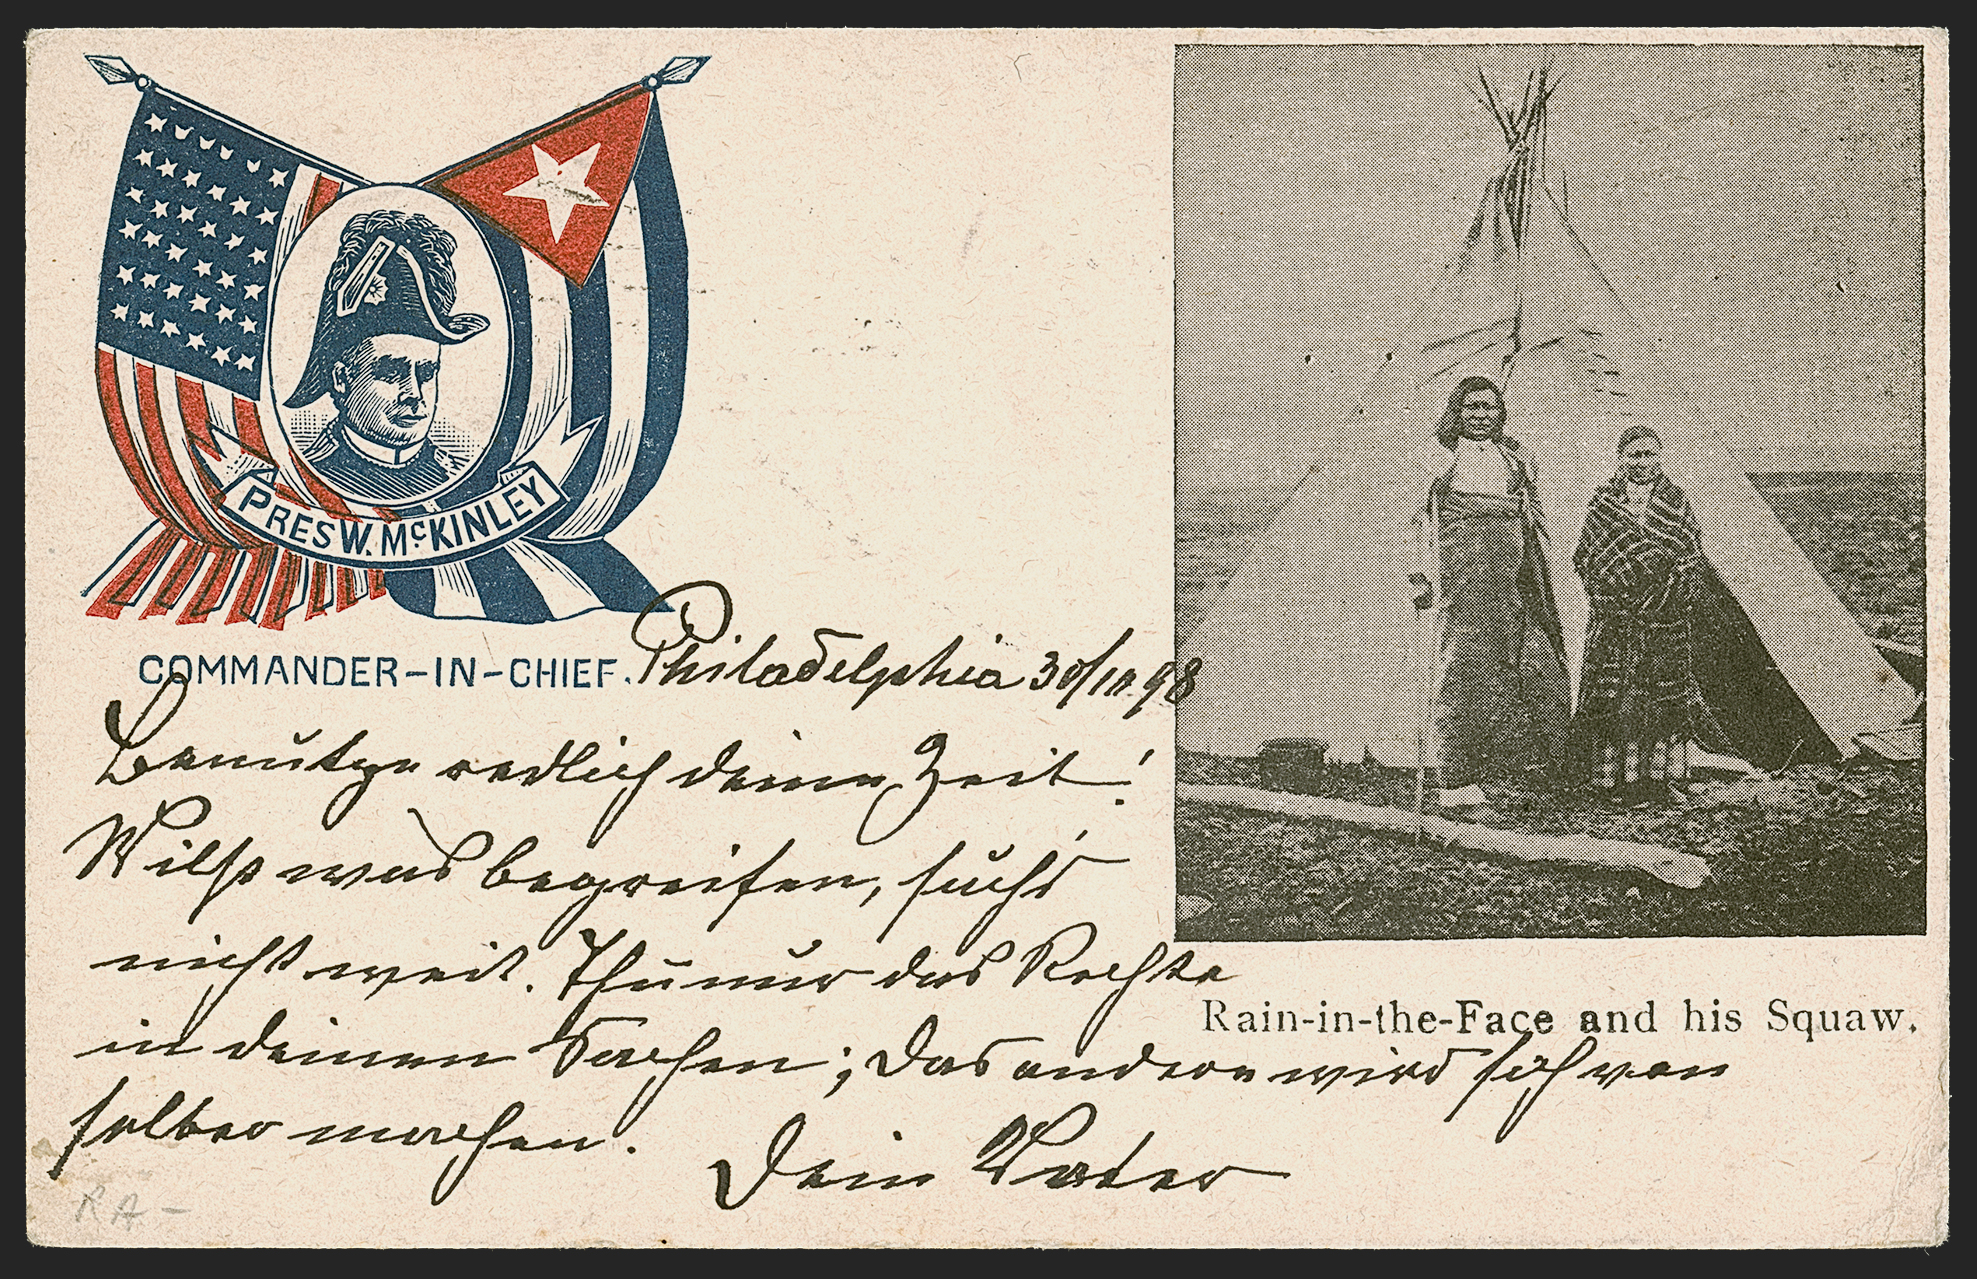 PRES W. McKINLEY
COMMANDER-IN-CHIEF.
Philadelphia 30/10 98
Benütze redlich deine Zeit!
Willst was begreifen, such's
nicht weit. Thu nur das Rechte
in deinen Sachen; Das andere wird sich von
selber machen.
Dein Vater
Rain-in-the-Face and his Squaw.
RA-